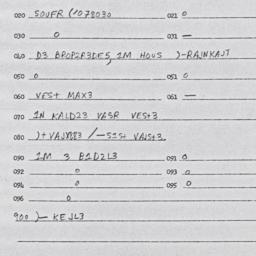 020 SOUFR (1078030 021 0
030 0 031 —
040 D3 BROP2P3DES, 1M HOUS )-RAJNKAJT
050 0 051 0
060 VES+ MAX3 061 —
070 1N KALD23 VASR VES+3
080
090 1M 3 B1D2L3 091 0
092 0 093 0
094 0 095 0
096 0
900 )— KEJL3